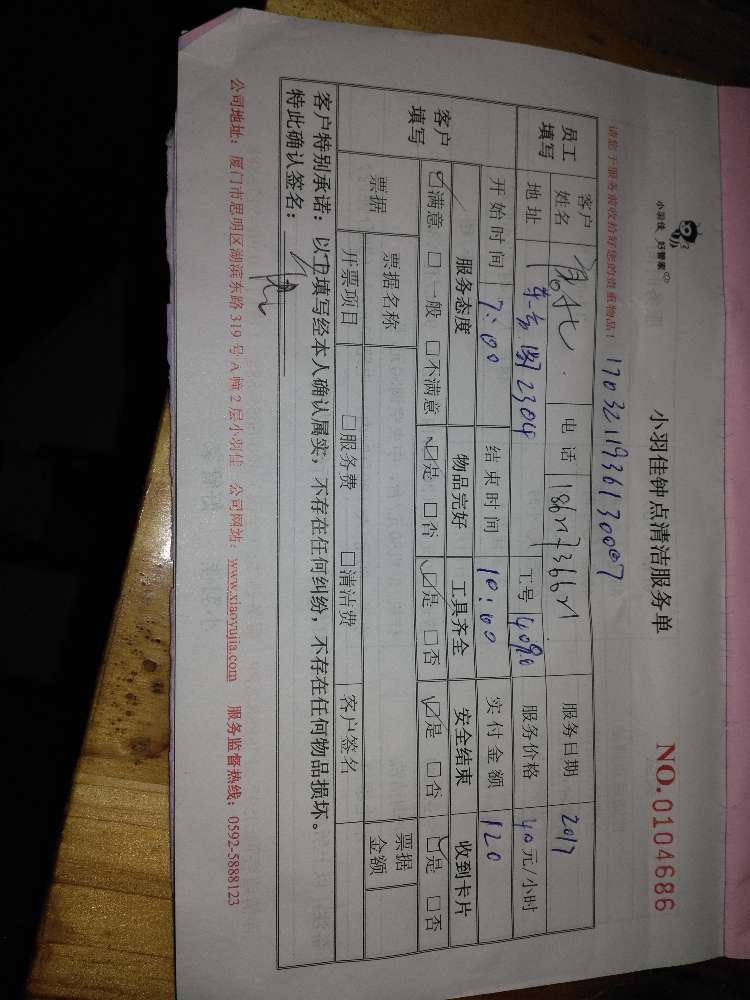 小羽佳 好管家
小羽佳钟点清洁服务单
NO.0104686
请您于服务前收拾好您的贵重物品！
17032119361300007
员工填写
客户姓名 电话 服务日期 2017
地址 2304 工号 4090 服务价格 40元/小时
开始时间 7:00 结束时间 10:00 实付金额 120
客户填写
服务态度 物品完好 工具齐全 安全结束 收到卡片
☑满意 □一般 □不满意 ☑是 □否 ☑是 □否 ☑是 □否 ☑是 □否
票据 票据名称 客户签名 票据金额
开票项目 □服务费 □清洁费
客户特别承诺：以上填写经本人确认属实，不存在任何纠纷，不存在任何物品损坏。
特此确认签名：
公司地址：厦门市思明区湖滨东路319号A幢2层小羽佳 公司网站：www.xiaoyujia.com 服务监督热线：0592-5888123